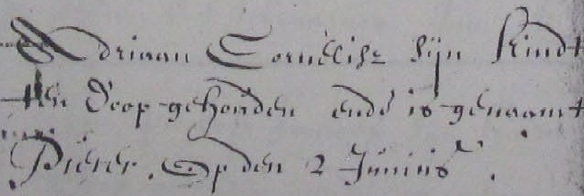 Adriaan Cornelisz sijn kindt
ten doop gehouden ende is genaamt
Pieter. Op den 2 Junius.